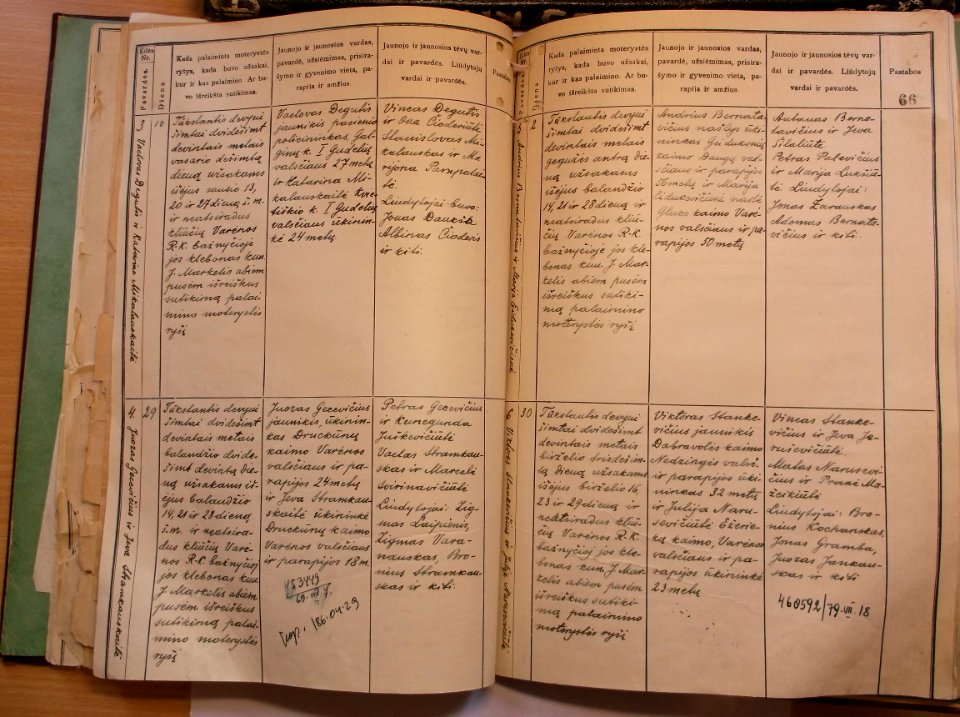 Eilės Nr.
Pavardės.
Diena
Kada palaiminta moterystės
ryšys, kada buvo užsakai,
kur ir kas palaimino. Ar bu-
vo išreikšta sutikimas.
Jaunojo ir jaunosios vardas,
pavardė, užsiėmimas, prisira-
šymo ir gyvenimo vieta, pa-
rapija ir amžios.
Jaunojo ir jaunosios tėvų var-
dai ir pavardės. Liūdytojų
vardai ir pavardės.
Pastabos
10
Tūkstantis devyni
šimtai dvidešimt
devintais metais
vasario dešimtą
dieną užsakams
išėjus sausio 13,
20 ir 27 dieną š.m.
ir neatsiradus
kliūčių Varėnos
R.K. bažnyčioje
jos klebonas kun.
J. Markelis abiem
pusėm išreiškus
sutikimą palai-
mino moterystės
ryšį
Vaclovas Degutis
jaunikis pasienio
policininkas,
k. I Gudelių
valsčiaus 27 metų
ir Katarina Mi-
kalauskaitė
k. I Gudelių
valsčiaus ūkinin-
kė 24 metų
Vincas Degutis
ir Ona Čioderiūtė
Stanislovas Mi-
kalauskas ir Ma-
rijona Pampalai-
tė
Liudytojai buvo:
Jonas Daukša
Albinas Čioderis
ir kiti.
Vaclovas Degutis ir Katarina Mikalauskaitė
4.
29
Tūkstantis devyni
šimtai dvidešimt
devintais metais
balandžio dvide-
šimt devintą die-
ną užsakams iš-
ėjus balandžio
14, 21 ir 28 dieną
š.m. ir neatsira-
dus kliūčių Varė-
nos R.K. bažnyčioj
jos klebonas kun.
J. Markelis abiem
pusėm išreiškus
sutikimą palai-
mino moterystės
ryšį
Juozas Gecevičius
jaunikis, ūkinin-
kas Druckūnų
kaimo Varėnos
valsčiaus ir pa-
rapijos 24 metų
ir Ieva Stramkau-
skaitė ūkininkė
Druckūnų kaimo
Varėnos valsčiaus
ir parapijos 18 m.
Petras Gecevičius
ir Kunegunda
Juškevičiūtė
Vaclas Stramkau-
skas ir Marcelė
Svirinavičiūtė
Liudytojai: Zig-
mas Laipienis,
Zigmas Vara-
nauskas, Bro-
nius Stramkau-
skas ir kiti.
Juozas Gecevičius ir Ieva Stramkauskaitė
186-04-29
Kada palaiminta moterystės
ryšys, kada buvo užsakai,
kur ir kas palaimino. Ar bu-
vo išreikšta sutikimas.
Jaunojo ir jaunosios vardas,
pavardė, užsiėmimas, prisira-
šymo ir gyvenimo vieta, pa-
rapija ir amžios.
Jaunojo ir jaunosios tėvų
vardai ir pavardės. Liūdytojų
vardai ir pavardės.
Pastabos
66
2
Tūkstantis devyni
šimtai dvidešimt
devintais metais
gegužės antrą die-
ną užsakams
išėjus balandžio
14, 21 ir 28 dieną ir
neatsiradus kliū-
čių Varėnos R.K.
bažnyčioje jos kle-
bonas kun. J. Mar-
kelis abiem pusėm
išreiškus sutiki-
mą palaimino
moterystės ryšį
Andrius Bernata-
vičius našlys ūki-
ninkas
kaimo Daugų val-
sčiaus ir parapijos
metų ir Marija
našlė
kaimo Varė-
nos valsčiaus ir pa-
rapijos 50 metų
Antanas Berna-
tavičius ir Ieva
Šilaliūtė
Petras Palevičius
ir Marija Lukšiū-
tė. Liudytojai:
Jonas Zarauskas
Adomas Bernata-
vičius ir kiti.
30
Tūkstantis devyni
šimtai dvidešimt
devintais metais
birželio trisdešim-
tą dieną užsakams
išėjus birželio 16,
23 ir 29 dieną ir
neatsiradus kliū-
čių Varėnos R.K.
bažnyčioj jos kle-
bonas kun. J. Mar-
kelis abiem pusėm
išreiškus sutiki-
mą palaimino
moterystės ryšį
Viktoras Stanke-
vičius jaunikis
Dabravolės kaimo
Nedzingės valsč.
ir parapijos ūki-
ninkas 32 metų
ir Julija Naru-
sevičiūtė Ežerie-
kų kaimo, Varėnos
valsčiaus ir pa-
rapijos ūkininkė
23 metų
Vincas Stanke-
vičius ir Ieva Ja-
rusevičiūtė.
Matas Narusevi-
čius ir Pranė Ma-
žeikiūtė
Liudytojai: Bro-
nius Kochanskas,
Jonas Gramba,
Juozas Jankau-
skas ir kiti
Viktoras Stankevičius ir Julija Narusevičiūtė
460592/79-VII 18